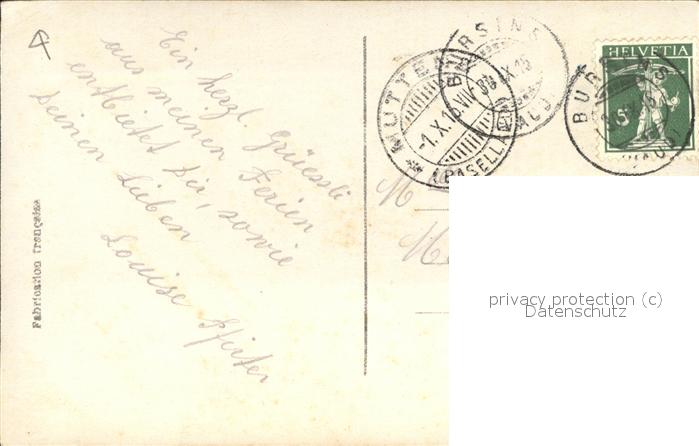 Ein herzl. Grüessli
aus meinen Ferien
entbietet Dir, sowie
Deinen Lieben
Louise Pfirter
Fabrication française
MUTTENZ
-1.X.16.VII
(BASELLAND)
BURSINS
(VAUD)
HELVETIA
5
BURSINS
(VAUD)
M
privacy protection (c)
Datenschutz